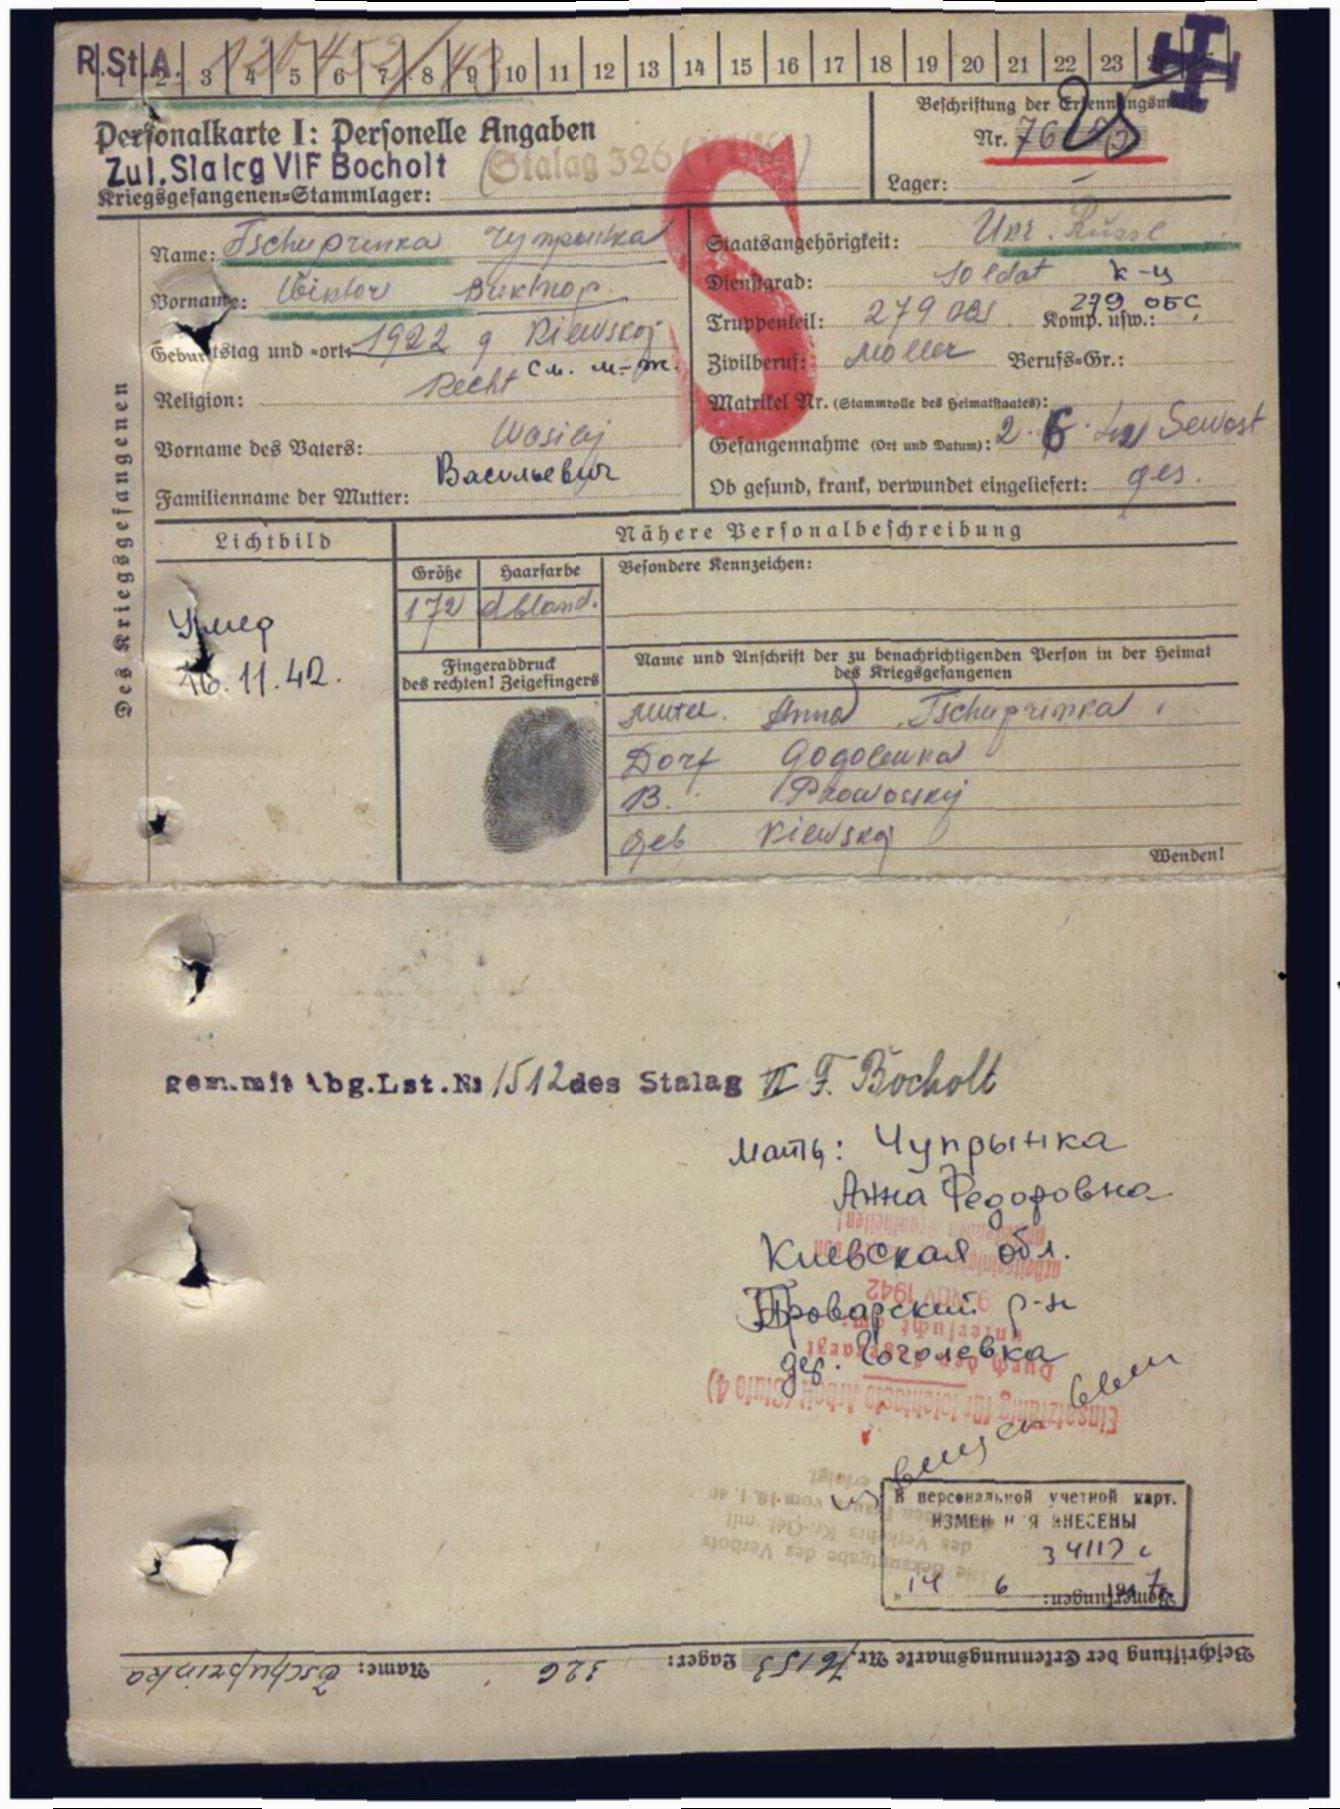 R.St.A. 120452/43
1 2 3 4 5 6 7 8 9 10 11 12 13 14 15 16 17 18 19 20 21 22 23
Personalkarte I: Personelle Angaben
Beschriftung der Erkennungsmarke
Nr. 76153
Zul. Stalag VIF Bocholt
(Stalag 326
Kriegsgefangenen-Stammlager:
Lager: –
S
Des Kriegsgefangenen
Name: Tschuprinka Чупрынка
Vorname: Viktor Виктор
Geburtstag und -ort: 1922 g Kiewskoj
см. м-ж.
Religion: Recht
Vorname des Vaters: Wasilij
Васильевич
Familienname der Mutter:
Staatsangehörigkeit: Ukr. Russe
Dienstgrad: Soldat к-ц
Truppenteil: 279 OBS Komp. usw.: 279 ОБС
Zivilberuf: Möller Berufs-Gr.:
Matrikel Nr. (Stammrolle des Heimatstaates):
Gefangennahme (Ort und Datum): 2. 6. 42 Sewost
Ob gesund, krank, verwundet eingeliefert: ges.
Lichtbild
Nähere Personalbeschreibung
Größe Haarfarbe Besondere Kennzeichen:
172 dbland.
Умер
16.11.42.
Fingerabdruck
des rechten! Zeigefingers
Name und Anschrift der zu benachrichtigenden Person in der Heimat
des Kriegsgefangenen
Mutter. Anna Tschuprinka
Dorf Gogolewka
B.
Geb Kiewskoj
Wenden!
gem. mit Abg.Lst.Nr 1512 des Stalag VI F. Bocholt
мать: Чупрынка
Анна Федоровна
Киевская обл.
Броварский р-н
дер. Гоголевка
9. NOV. 1942
Durch den Lagerarzt
untersucht am:
Einsatzfähig für leichteste Arbeit (Stufe 4)
Die Bekanntgabe des Verbots
des Verkehrs Kr.-Gef. mit
Frauen vom 10. 1. 40
erfolgt
В персональной учетной карт.
ИЗМЕНЕНИЯ ВНЕСЕНЫ
34117 с
"14 6 1947
Bemerkungen:
Beschriftung der Erkennungsmarke Nr. 76153 Lager: 326 Name: Tschuprinka